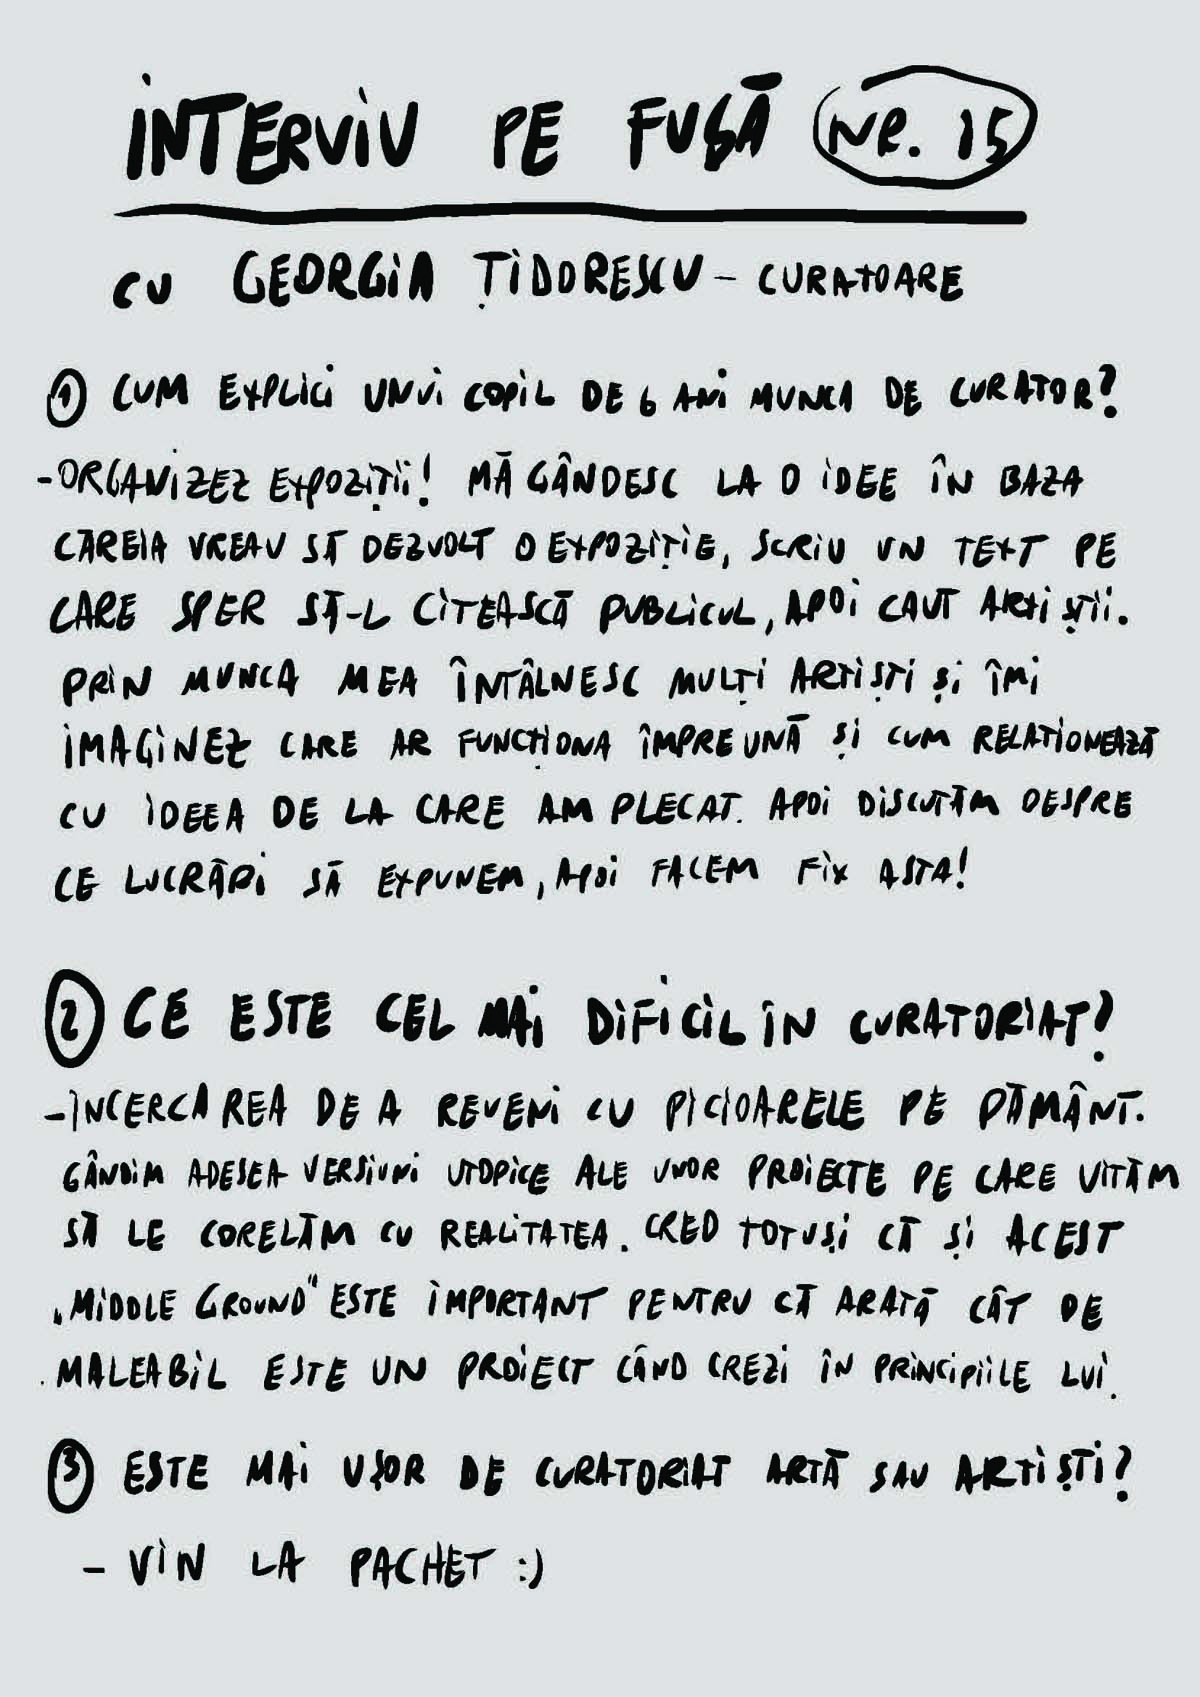 INTERVIU PE FUGĂ NR. 15
CU GEORGIA ȚIDORESCU - CURATOARE
1 CUM EXPLICI UNUI COPIL DE 6 ANI MUNCA DE CURATOR?
-ORGANIZEZ EXPOZIȚII! MĂ GÂNDESC LA O IDEE ÎN BAZA
CĂREIA VREAU SĂ DEZVOLT O EXPOZIȚIE, SCRIU UN TEXT PE
CARE SPER SĂ-L CITEASCĂ PUBLICUL, APOI CAUT ARTIȘTII.
PRIN MUNCA MEA ÎNTÂLNESC MULȚI ARTIȘTI ȘI ÎMI
IMAGINEZ CARE AR FUNCȚIONA ÎMPREUNĂ ȘI CUM RELAȚIONEAZĂ
CU IDEEA DE LA CARE AM PLECAT. APOI DISCUTĂM DESPRE
CE LUCRĂRI SĂ EXPUNEM, APOI FACEM FIX ASTA!
2 CE ESTE CEL MAI DIFICIL ÎN CURATORIAT?
-ÎNCERCAREA DE A REVENI CU PICIOARELE PE PĂMÂNT.
GÂNDIM ADESEA VERSIUNI UTOPICE ALE UNOR PROIECTE PE CARE UITĂM
SĂ LE CORELĂM CU REALITATEA. CRED TOTUȘI CĂ ȘI ACEST
„MIDDLE GROUND" ESTE IMPORTANT PENTRU CĂ ARATĂ CÂT DE
MALEABIL ESTE UN PROIECT CÂND CREZI ÎN PRINCIPIILE LUI.
3 ESTE MAI UȘOR DE CURATORIAT ARTĂ SAU ARTIȘTI?
- VIN LA PACHET :)